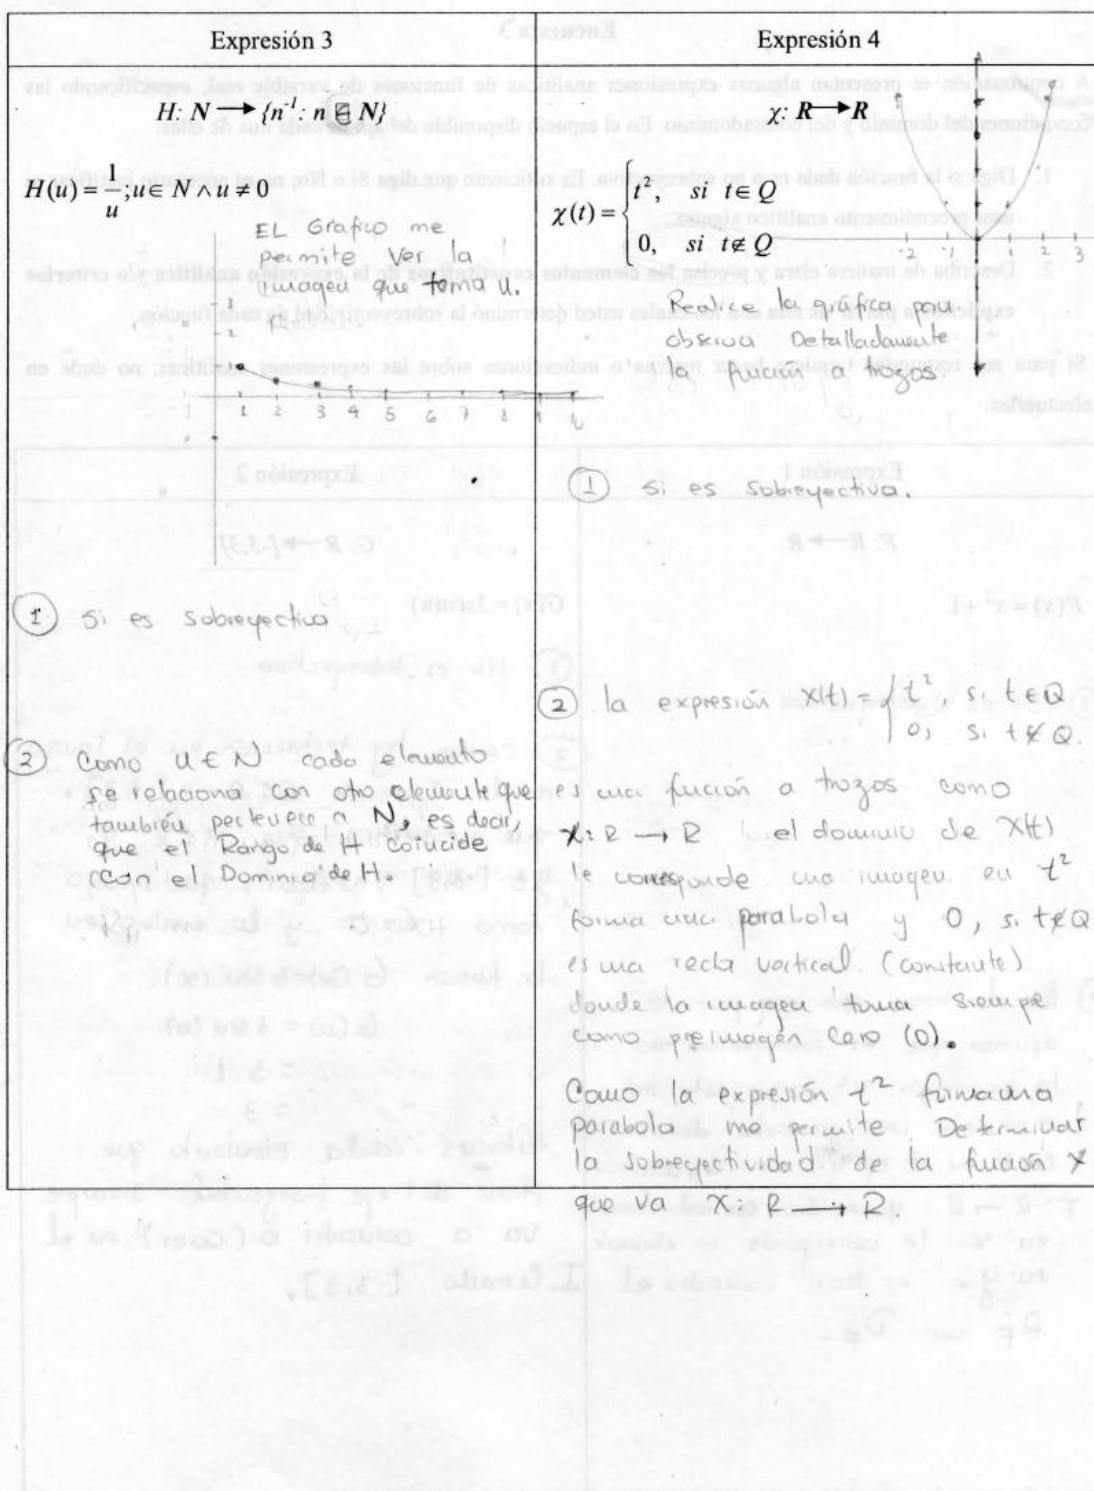 Expresión 3
H: N → {n⁻¹: n ∈ N}
H(u) = 1/u; u ∈ N ∧ u ≠ 0
EL Grafico me
permite Ver la
imagen que toma u.
3
2
1 2 3 4 5 6 7 8 9 10
1 Si es Sobreyectiva
2 Como u ∈ N cada elemento
se relaciona con otro elemento que
también pertenece a N, es decir,
que el Rango de H coincide
con el Dominio de H.
Expresión 4
χ: R → R
χ(t) = { t², si t ∈ Q
0, si t ∉ Q
-2 -1 1 2 3
Realice la gráfica para
observa Detalladamente
la función a trozos.
1 Si es Sobreyectiva.
2 la expresión X(t) = | t², si t ∈ Q
0, si t ∉ Q.
es una función a trozos como
X: R → R el dominio de X(t)
le corresponde una imagen en t²
forma una parabola y 0, si t ∉ Q
es una recta vertical (constante)
donde la imagen toma siempre
como preimagen Cero (0).
Como la expresión t² forma una
parabola me permite Determinar
la sobreyectividad de la función X
que va X: R → R.